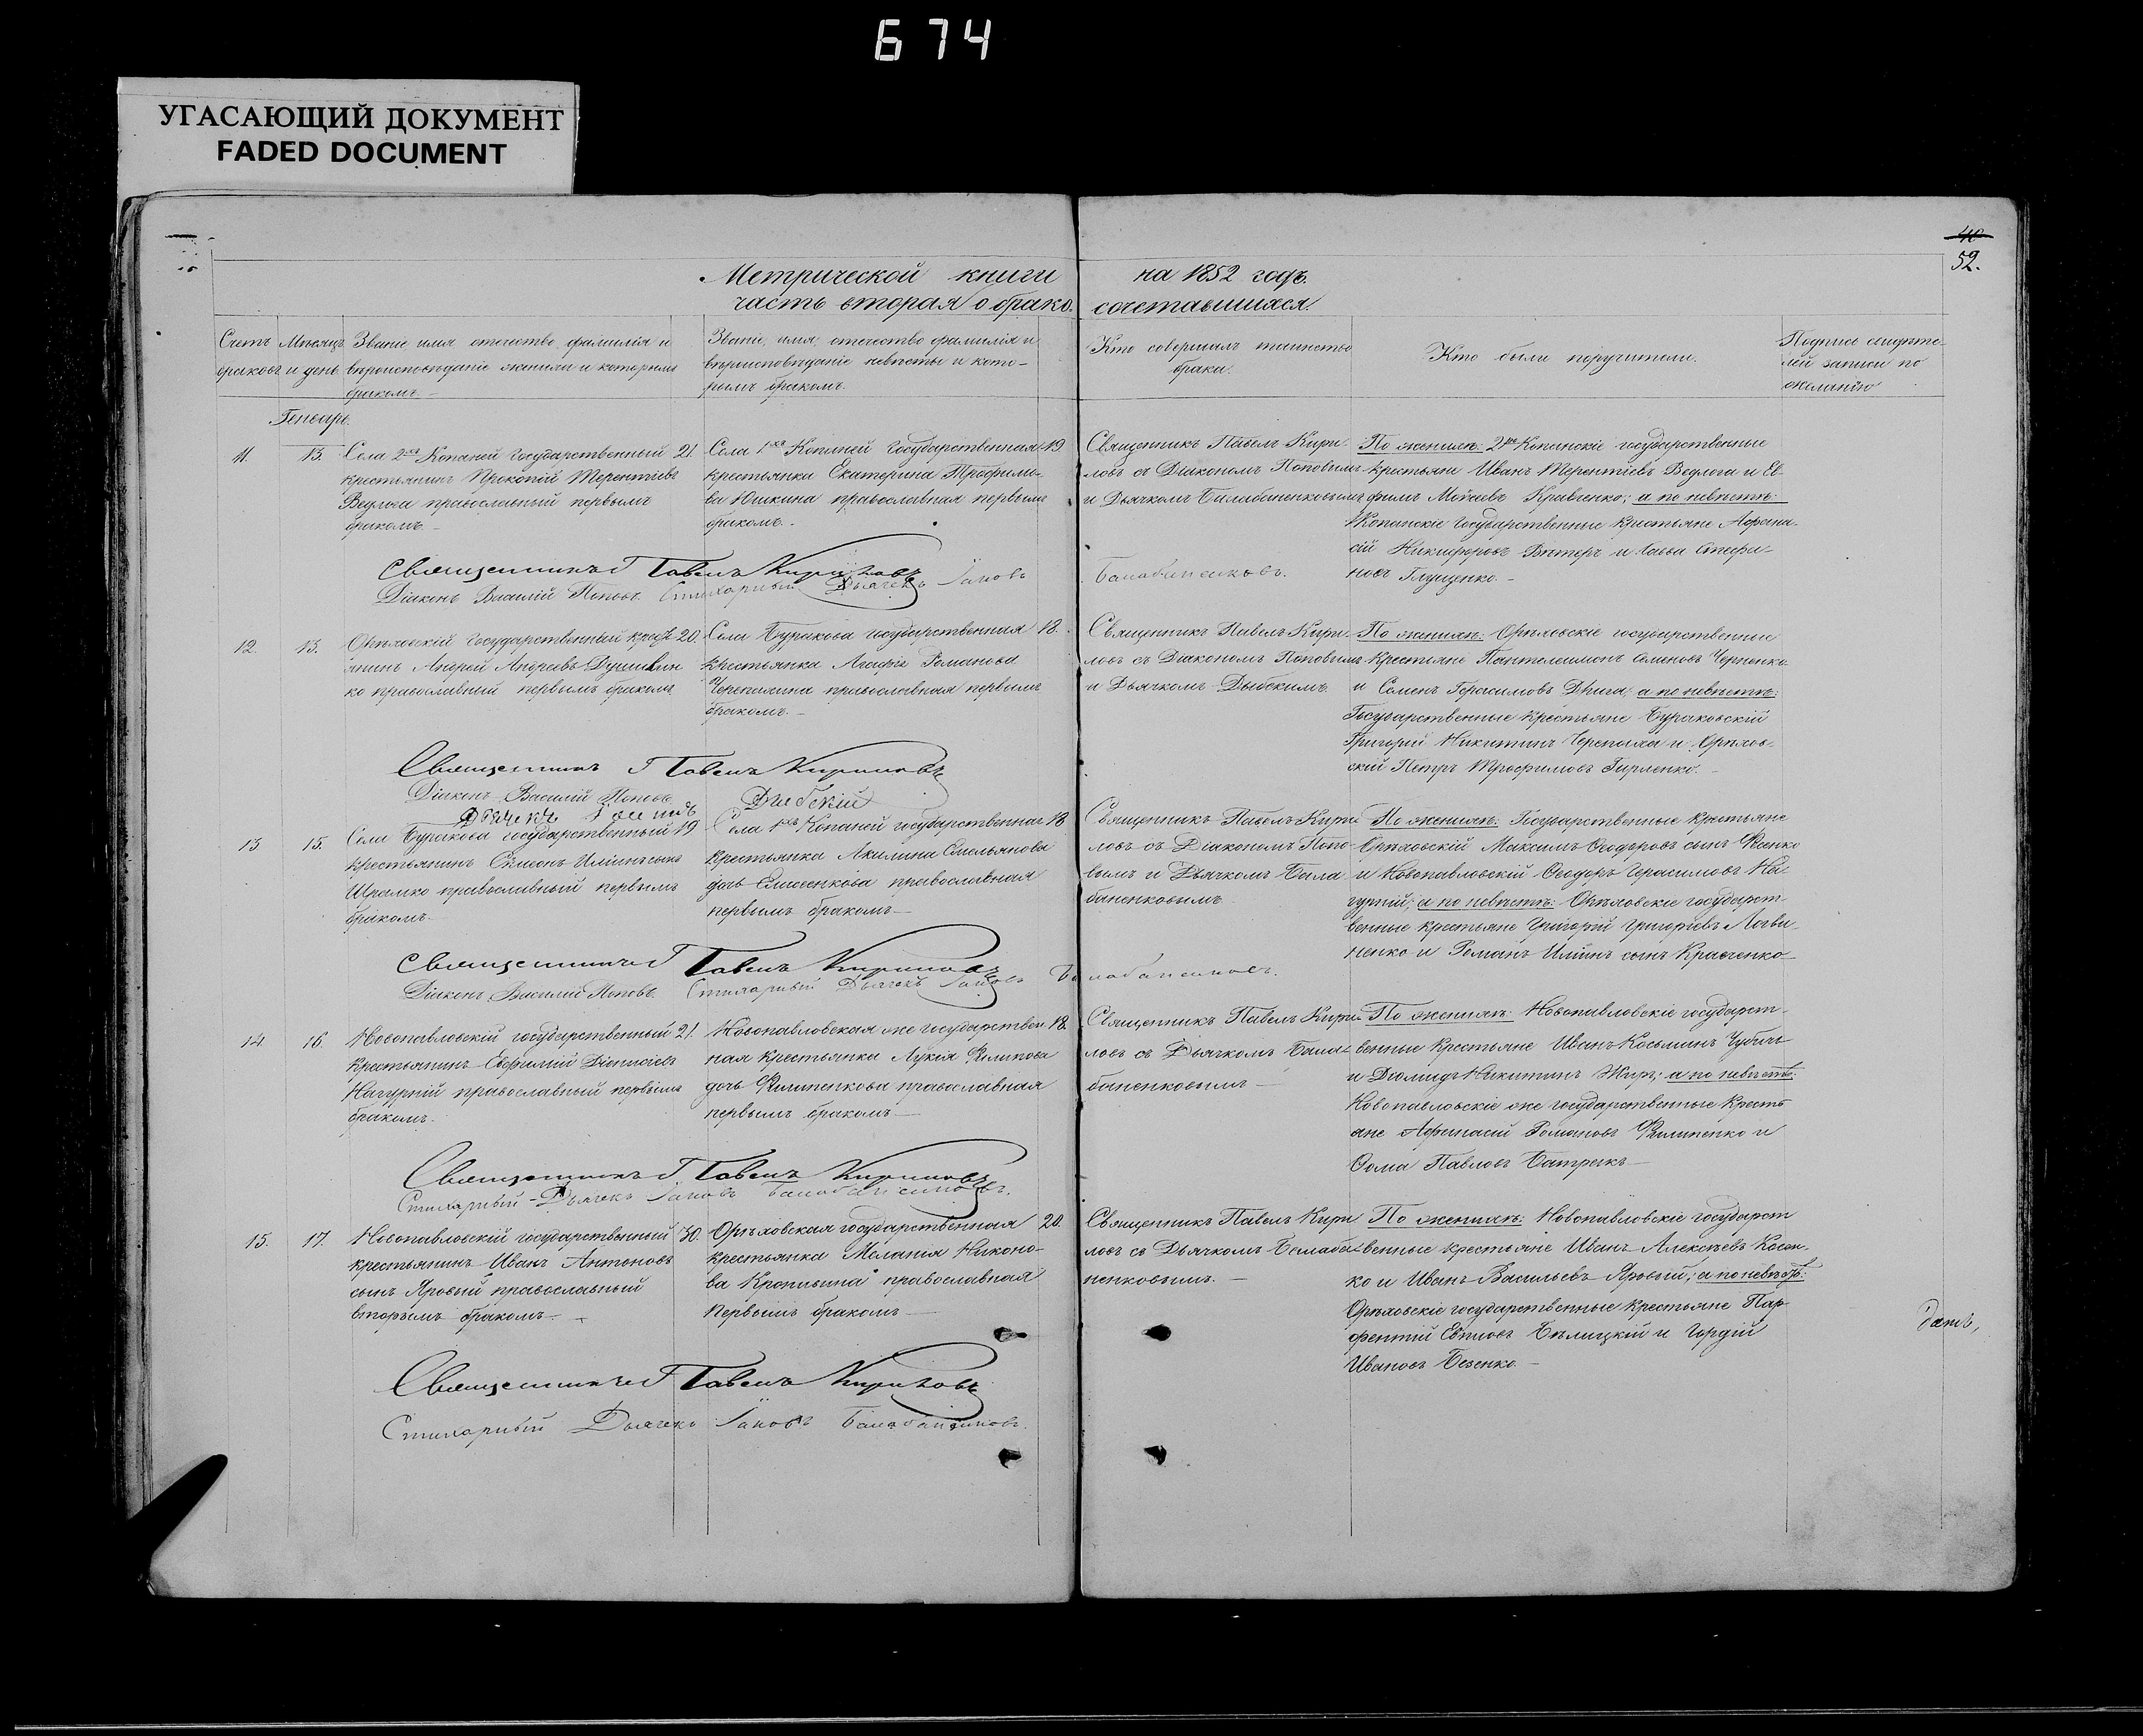 674
УГАСАЮЩИЙ ДОКУМЕНТ
FADED DOCUMENT
40
52.
Метрической книги на 1852 годъ.
часть вторая о брако. сочетавшихся.
Счетъ браковъ
Мѣсяцъ и день
Званіе имя отечество фамилія и
вѣроисповѣданіе жениха и которымъ
бракомъ. –
Званіе, имя, отечество фамилія и
вѣроисповѣданіе невѣсты и кото-
рымъ бракомъ.
Кто совершалъ таинство
брака.
Кто были поручители.
Подпись свидѣте-
лей записи по
желанію
Генварь.
11. 13. Села 2хъ Копаней государственный 21.
крестьянинъ Прокопій Терентіевъ
Ведлога православный первымъ
бракомъ. –
Села 1хъ Копаней государственная 19.
крестьянка Екатерина Трофимо-
ва Юшкина православная первымъ
бракомъ. –
Священникъ Павелъ Кири-
ловъ съ Діакономъ Поповымъ
и Дьячкомъ Балабаненковымъ
По женихѣ: 2хъ Копанскіе государственные
крестьяне Иванъ Терентіевъ Ведлога и Ев
фимъ Мойсеевъ Кравченко; а по невѣстѣ:
Копанскіе государственные крестьяне Афана-
сій Никифоровъ Вѣтеръ и Савва Стефа-
новъ Глущенко. –
Священникъ Павелъ Кириловъ
Діаконъ Василій Поповъ. Стихарный Дьячекъ Іаковъ Балабаненковъ.
12. 13. Орѣховскій государственный крестья 20.
нинъ Андрей Андреевъ Душивлин
ко православный первымъ бракомъ
Села Бурлакова государственная 18.
крестьянка Агафія Романова
Черепахина православная первымъ
бракомъ. –
Священникъ Павелъ Кири-
ловъ съ Діакономъ Поповымъ
и Дьячкомъ Дыбскимъ.
По женихѣ: Орѣховскіе государственные
крестьяне Пантелеимонъ Семеновъ Черненко
и Семенъ Герасимовъ Дыга; а по невѣстѣ:
Государственные крестьяне Бураковскій
Григорій Никитинъ Черепаха и Орѣхов-
скій Петръ Трофимовъ Гирленко. –
Священникъ Павелъ Кириловъ
Діаконъ Василій Поповъ
Дьячекъ Дыбскій
13 15. Села Буракова государственный 19.
крестьянинъ Симеонъ Ильинъ сынъ
Шрамко православный первымъ
бракомъ.
Села 1хъ Копаней государственная 18
крестьянка Акилина Омельянова
дочь Елисеенкова православная
первымъ бракомъ –
Священникъ Павелъ Кири
ловъ съ Діакономъ Попо-
вымъ и Дьячкомъ Бала
баненковымъ
По женихѣ: Государственные крестьяне
Орѣховскій Максимъ Ѳеодоровъ сынъ Фсенко
и Новопавловскій Ѳеодоръ Герасимовъ На-
гурній; а по невѣстѣ: Орѣховскіе государст-
венные крестьяне Григорій Григорьевъ Логви-
ненко и Романъ Ильинъ сынъ Кравченко –
Священникъ Павелъ Кириловъ
Діаконъ Василій Поповъ. Стихарный Дьячекъ Іаковъ Балабаненковъ.
14. 16. Новопавловскій государственный 21.
крестьянинъ Евфимій Діонисіевъ
Нагурній православный первымъ
бракомъ.
Новопавловская же государствен 18.
ная крестьянка Лукія Филипова
дочь Филипенкова православная
первымъ бракомъ –
Священникъ Павелъ Кири-
ловъ съ Дьячкомъ Бала-
баненковымъ –
По женихѣ: Новопавловскіе государст-
венные крестьяне Иванъ Косьминъ Чубичъ
и Діомидъ Никитинъ Жиръ; а по невѣстѣ:
Новопавловскіе же государственные кресть
яне Афанасій Романовъ Филипенко и
Ѳома Павловъ Батрекъ –
Священникъ Павелъ Кириловъ
Стихарный Дьячекъ Іаковъ Балабаненковъ.
15. 17. Новопавловскій государственный 30.
крестьянинъ Иванъ Антоновъ
сынъ Яровый православный
вторымъ бракомъ. –
Орѣховская государственная 20.
крестьянка Меланія Никоно-
ва Кропивина православная
первымъ бракомъ –
Священникъ Павелъ Кири
ловъ съ Дьячкомъ Балаба-
ненковымъ. –
По женихѣ: Новопавловскіе государст
венные крестьяне Иванъ Алексѣевъ Косен-
ко и Иванъ Васильевъ Яровый; а по невѣстѣ:
Орѣховскіе государственные крестьяне Пар
фентій Евтиовъ Бѣлицкій и Гордій
Ивановъ Безенко. –
дать,
Священникъ Павелъ Кириловъ
Стихарный Дьячекъ Іаковъ Балабаненковъ.